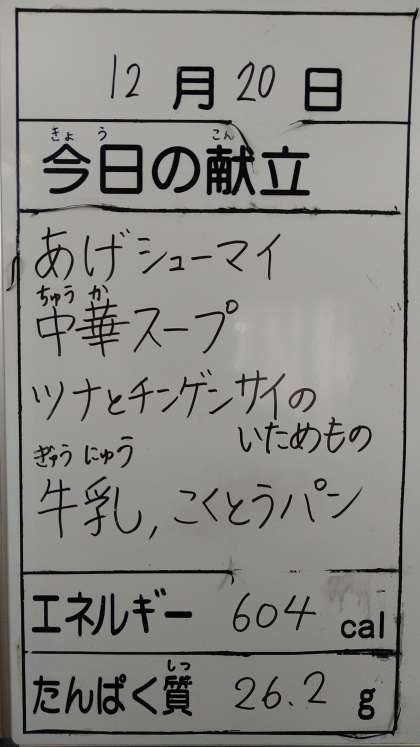 12月20日
きょう こん
今日の献立
あげシューマイ
ちゅう か
中華スープ
ツナとチンゲンサイの
いためもの
ぎゅう にゅう
牛乳, こくとうパン
エネルギー 604 cal
しつ
たんぱく質 26.2 g